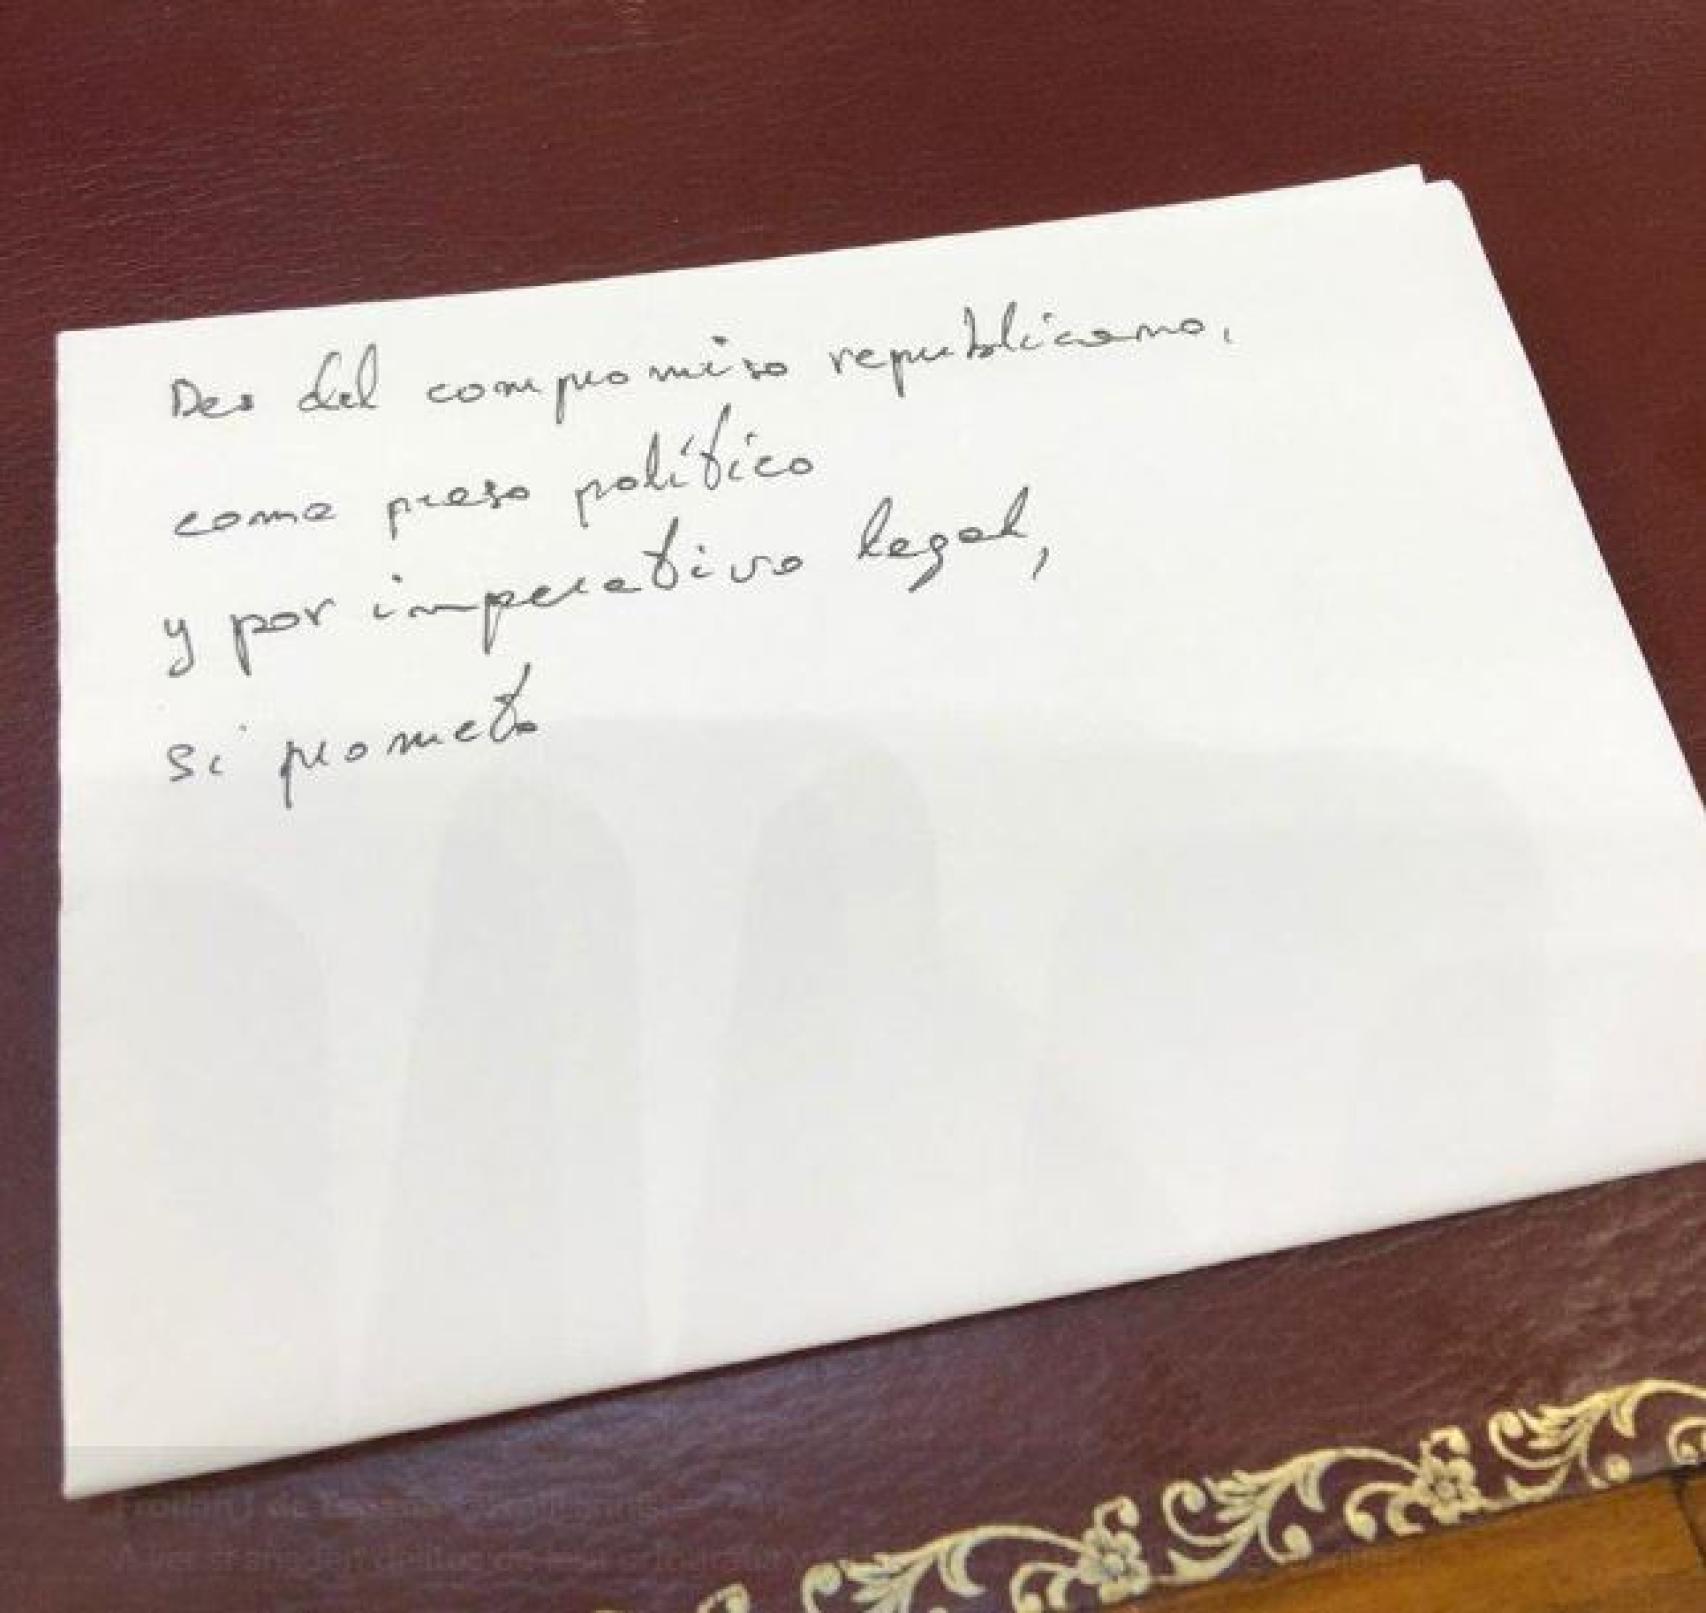 Des del compromiso republicano,
como preso político
y por imperativo legal,
sí prometo